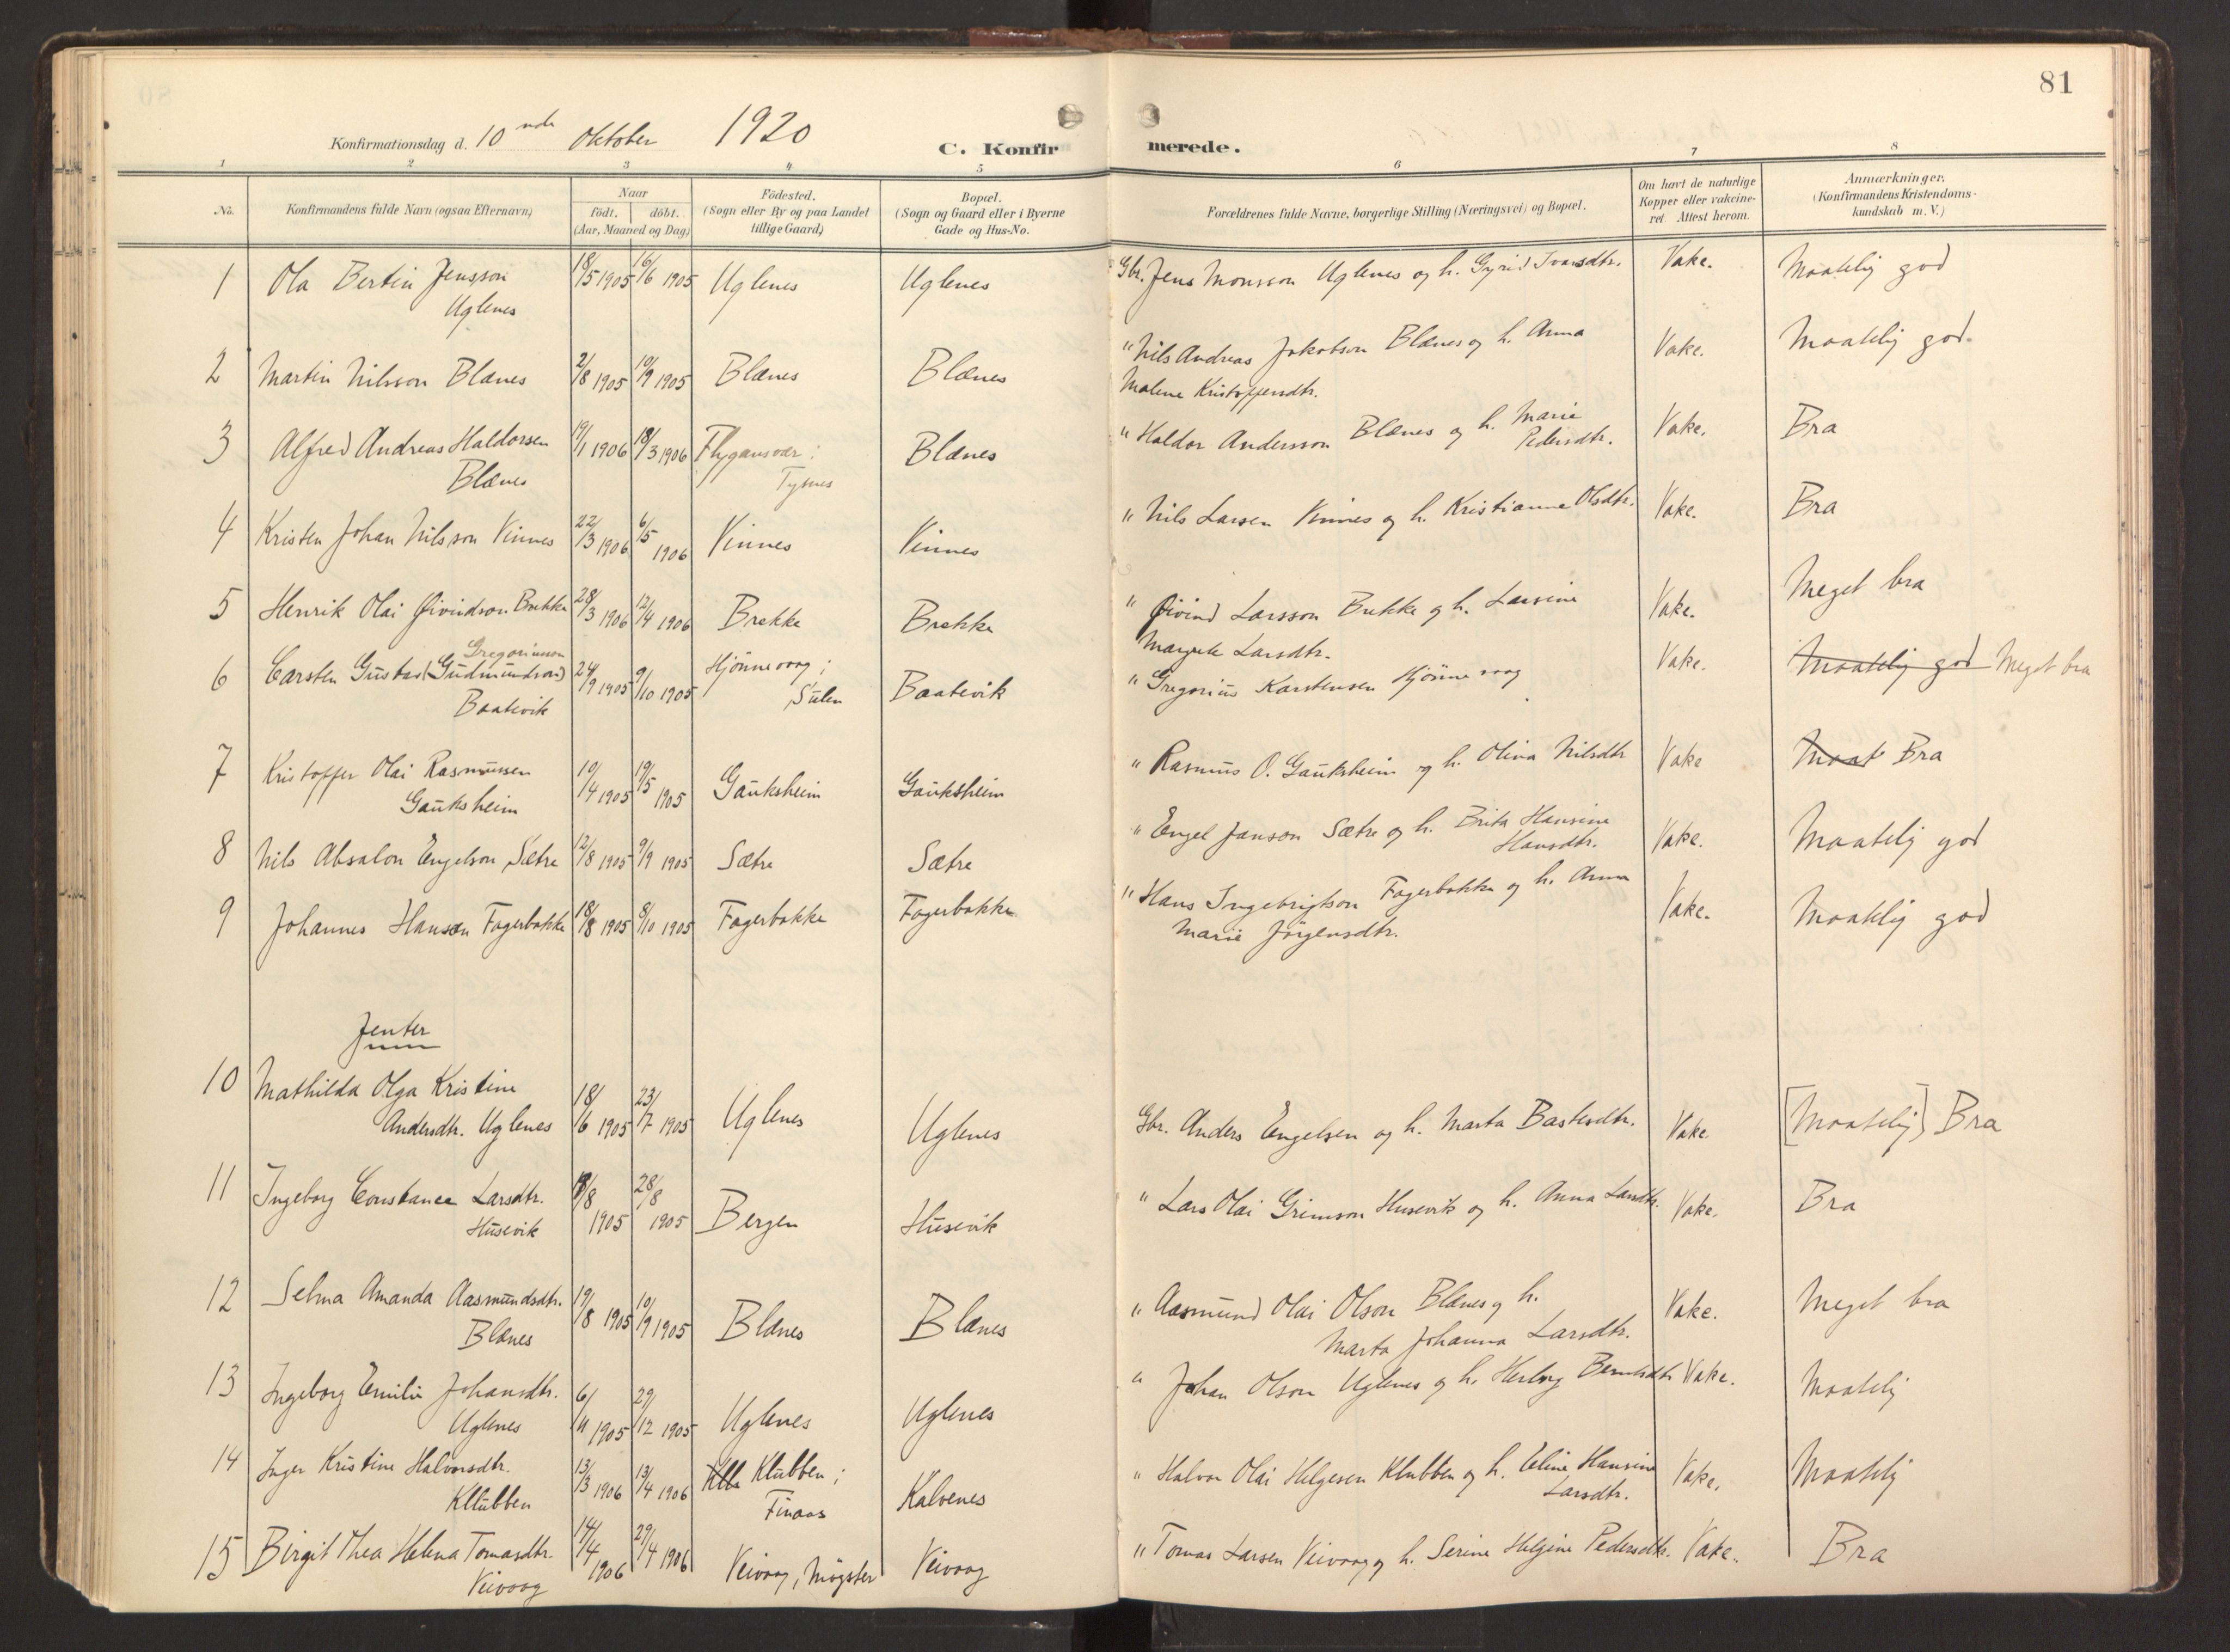 81
Konfirmationsdag d. 10 nde Oktober 1920
C. Konfirmerede.
1 2 3 4 5 6 7 8
No.
Konfirmandens fulde Navn (ogsaa Efternavn)
Naar
födt. döbt.
(Aar, Maaned og Dag)
Födested.
(Sogn eller By og paa Landet
tillige Gaard)
Bopæl.
(Sogn og Gaard eller i Byerne
Gade og Hus-No.
Forældrenes fulde Navne, borgerlige Stilling (Næringsvei) og Bopæl.
Om havt de naturlige
Kopper eller vakcine-
ret Attest herom.
Anmærkninger.
(Konfirmandens Kristendoms-
kundskab m. V.)
1 Ola Bertin Jensson 18/5 1905 16/6 1905 Uglenes Uglenes Gbr. Jens Monsson Uglenes og h. Gyrid Ivarsdtr. Vakc. Maatelig god
Uglenes
2 Martin Nilsson Blænes 2/8 1905 10/9 1905 Blænes Blænes " Nils Andreas Jakobson Blænes og h. Anna Vakc. Maatelig god.
Malene Kristoffersdtr.
3 Alfred Andreas Haldorsen 19/1 1906 18/3 1906 Flygansvær; Blænes " Haldor Andersson Blænes og h. Marie Vakc. Bra
Blænes Tysnes Pedersdtr.
4 Kristen Johan Nilsson Vinnes 22/3 1906 6/5 1906 Vinnes Vinnes " Nils Larsen Vinnes og h. Kristianne Olsdtr. Vakc. Bra
5 Henrik Olai Øivindson Brekke 28/3 1906 12/4 1906 Brekke Brekke " Øivind Larsson Brekke og h. Larsine Vakc. Meget bra
Margrete Larsdtr.
Gregoriusson
6 Carsten Gustav (Gudmundson) 24/9 1905 9/10 1905 Hjønnevaag; Baatevik " Gregorius Karstensen Hjønnevaag Vakc. Maatelig god Meget bra
Baatevik Sulen
7 Kristoffer Olai Rasmussen 10/4 1905 19/5 1905 Gauksheim Gauksheim " Rasmus O. Gauksheim og h. Olina Nilsdtr Vakc Maat Bra
Gauksheim
8 Nils Absalon Engelson Sætre 12/8 1905 9/9 1905 Sætre Sætre " Engel Janson Sætre og h. Brita Hansine Vakc. Maatelig god
Hansdtr.
9 Johannes Hansen Fagerbakke 18/8 1905 8/10 1905 Fagerbakke Fagerbakke " Hans Ingebrigtson Fagerbakke og h. Anna Vakc. Maatelig god
Marie Jörgensdtr.
Jenter
10 Mathilda Olga Kristine
Andersdtr. Uglenes 18/6 1905 23/7 1905 Uglenes Uglenes Gbr. Anders Engelsen og h. Marta Bastesdtr. Vakc. [Maatelig] Bra
11 Ingeborg Constance Larsdtr. /8 1905 28/8 1905 Bergen Husevik " Lars Olai Grimson Husevik og h. Anna Larsdtr. Vakc. Bra
Husevik
12 Selma Amanda Aasmundsdtr. 19/8 1905 10/9 1905 Blænes Blænes " Aasmund Olai Olson Blænes og h. Vakc. Meget bra
Blænes Marta Johanna Larsdtr.
13 Ingeborg Emilie Johansdtr. 6/11 1905 29/12 1905 Uglenes Uglenes " Johan Olson Uglenes og h. Herborg Berntsdtr Vakc. Maatelig
Uglenes
14 Inger Kristine Halvorsdtr. 13/3 1906 13/4 1906 Klubben; Kalvenes " Halvor Olai Helgesen Klubben og h. Celine Hansine Vakc. Maatelig
Klubben Finaas Larsdtr.
15 Birgit Thea Helena Tomasdtr. 14/4 1906 29/4 1906 Veivaag, Møgster Veivaag " Tomas Larsen Veivaag og h. Serine Helgine Pedersdtr. Vakc. Bra
Veivaag